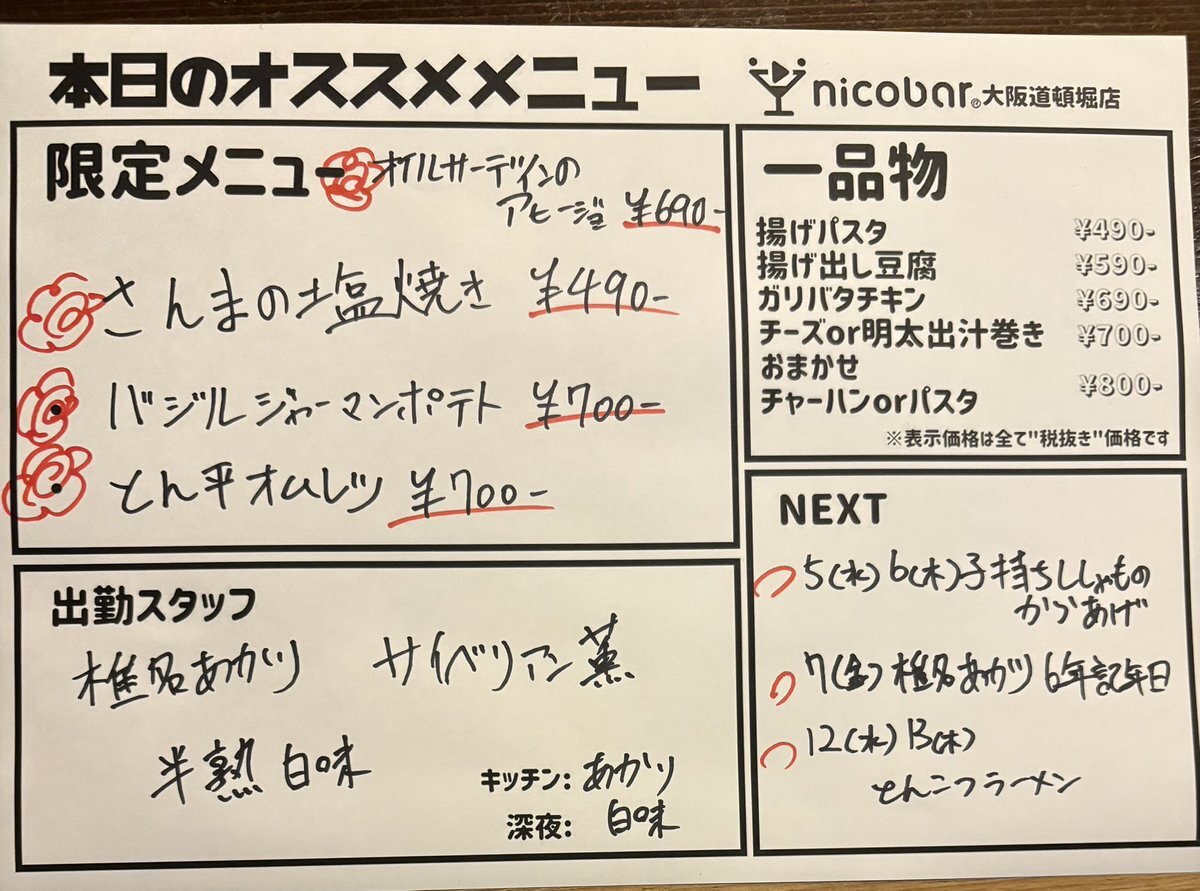 本日のオススメメニュー
nicobar® 大阪道頓堀店
限定メニュー
オイルサーデインの
アヒージョ ¥690-
さんまの塩焼き ¥490-
バジルジャーマンポテト ¥700-
とん平オムレツ ¥700-
一品物
揚げパスタ ¥490-
揚げ出し豆腐 ¥590-
ガリバタチキン ¥690-
チーズor明太出汁巻き ¥700-
おまかせ
チャーハンorパスタ ¥800-
※表示価格は全て"税抜き"価格です
出勤スタッフ
椎名あかり サイベリアン薫
半熟白味
キッチン: あかり
深夜: 白味
NEXT
5(水) 6(木)子持ちししゃもの
からあげ
7(金) 椎名あかり 6年記年日
12(水) 13(木)
とんこつラーメン